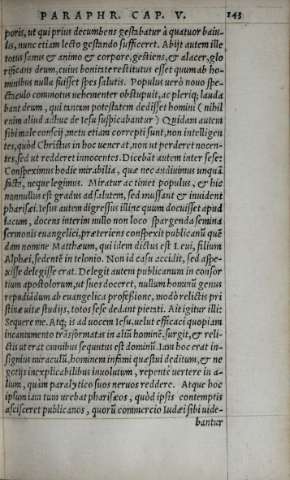 PARAPHR. CAP. V. 143
poris, ut qui prius decumbens gestabatur à quatuor baiu-
lis, nunc etiam lecto gestando sufficeret. Abijt autem ille
totus sanus & animo & corpore, gestiens, & alacer, glo
rificans deum, cuius bonitate restitutus esset quum ab ho-
minibus nulla fuisset spes salutis. Populus uerò nouo spe-
ctaculo commotus uehementer obstupuit, ac pleriq; lauda
bant deum, qui tantam potestatem dedisset homini (nihil
enim aliud adhuc de Iesu suspicabantur) Quidam autem
sibi male conscij, metu etiam correpti sunt, non intelligen
tes, quòd Christus in hoc uenerat, non ut perderet nocen-
tes, sed ut redderet innocentes. Dicebāt autem inter sese:
Conspeximus hodie mirabilia, quæ nec audiuimus unquā
facta, neque legimus. Miratur ac timet populus, & hic
nonnullus est gradus ad salutem, sed mussant & inuident
pharisæi. Iesus autem digressus illinc quum docuisset apud
lacum, docens interim nullo non loco spargenda semina
sermonis euangelici, præteriens conspexit publicanū quē
dam nomine Matthæum, qui idem dictus est Leui, filium
Alphei, sedentē in telonio. Non id casu accidit, sed aspe-
xisse delegisse erat. Delegit autem publicanum in consor
tium apostolorum, ut sues doceret, nullum hominū genus
repudiādum ab euangelica professione, modò relictis pri
stinæ uitæ studijs, totos sese dedant pietati. Ait igitur illi:
Sequere me. Atq; is ad uocem Iesu, uelut efficaci quopiam
incantamento trāsformatus in aliū hominē, surgit, & reli-
ctis ut erat omnibus sequutus est dominū. Iam hoc erat in-
signius miraculū, hominem infimi quæstui deditum, & ne
gotijs inexplicabilibus inuolutum, repente uertere in a-
lium, quàm paralytico suos neruos reddere. Atque hoc
ipsum iam tum urebat pharisæos, quòd ipsis contemptis
ascisceret publicanos, quorū commercio Iudæi sibi uide-
bantur